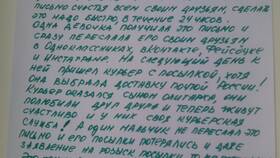 письмо счастья всем своим друзьям, сделав
это надо быстро в течение 24 часов.
Одна девочка получила это письмо и
сразу переслала его своим друзьям
в Одноклассниках, вконтакте, Фейсбуке
и Инстаграме. На следующий день к
ней пришёл курьер с посылкой, хотя
она выбрала доставку почтой России!
Курьер оказался сыном олигарха, они
полюбили друг друга и теперь живут
счастливо и у них своя курьерская
служба! А один мальчик не переслал это
письмо и его посылки потерялись и даже
заявление на розыск посылки то